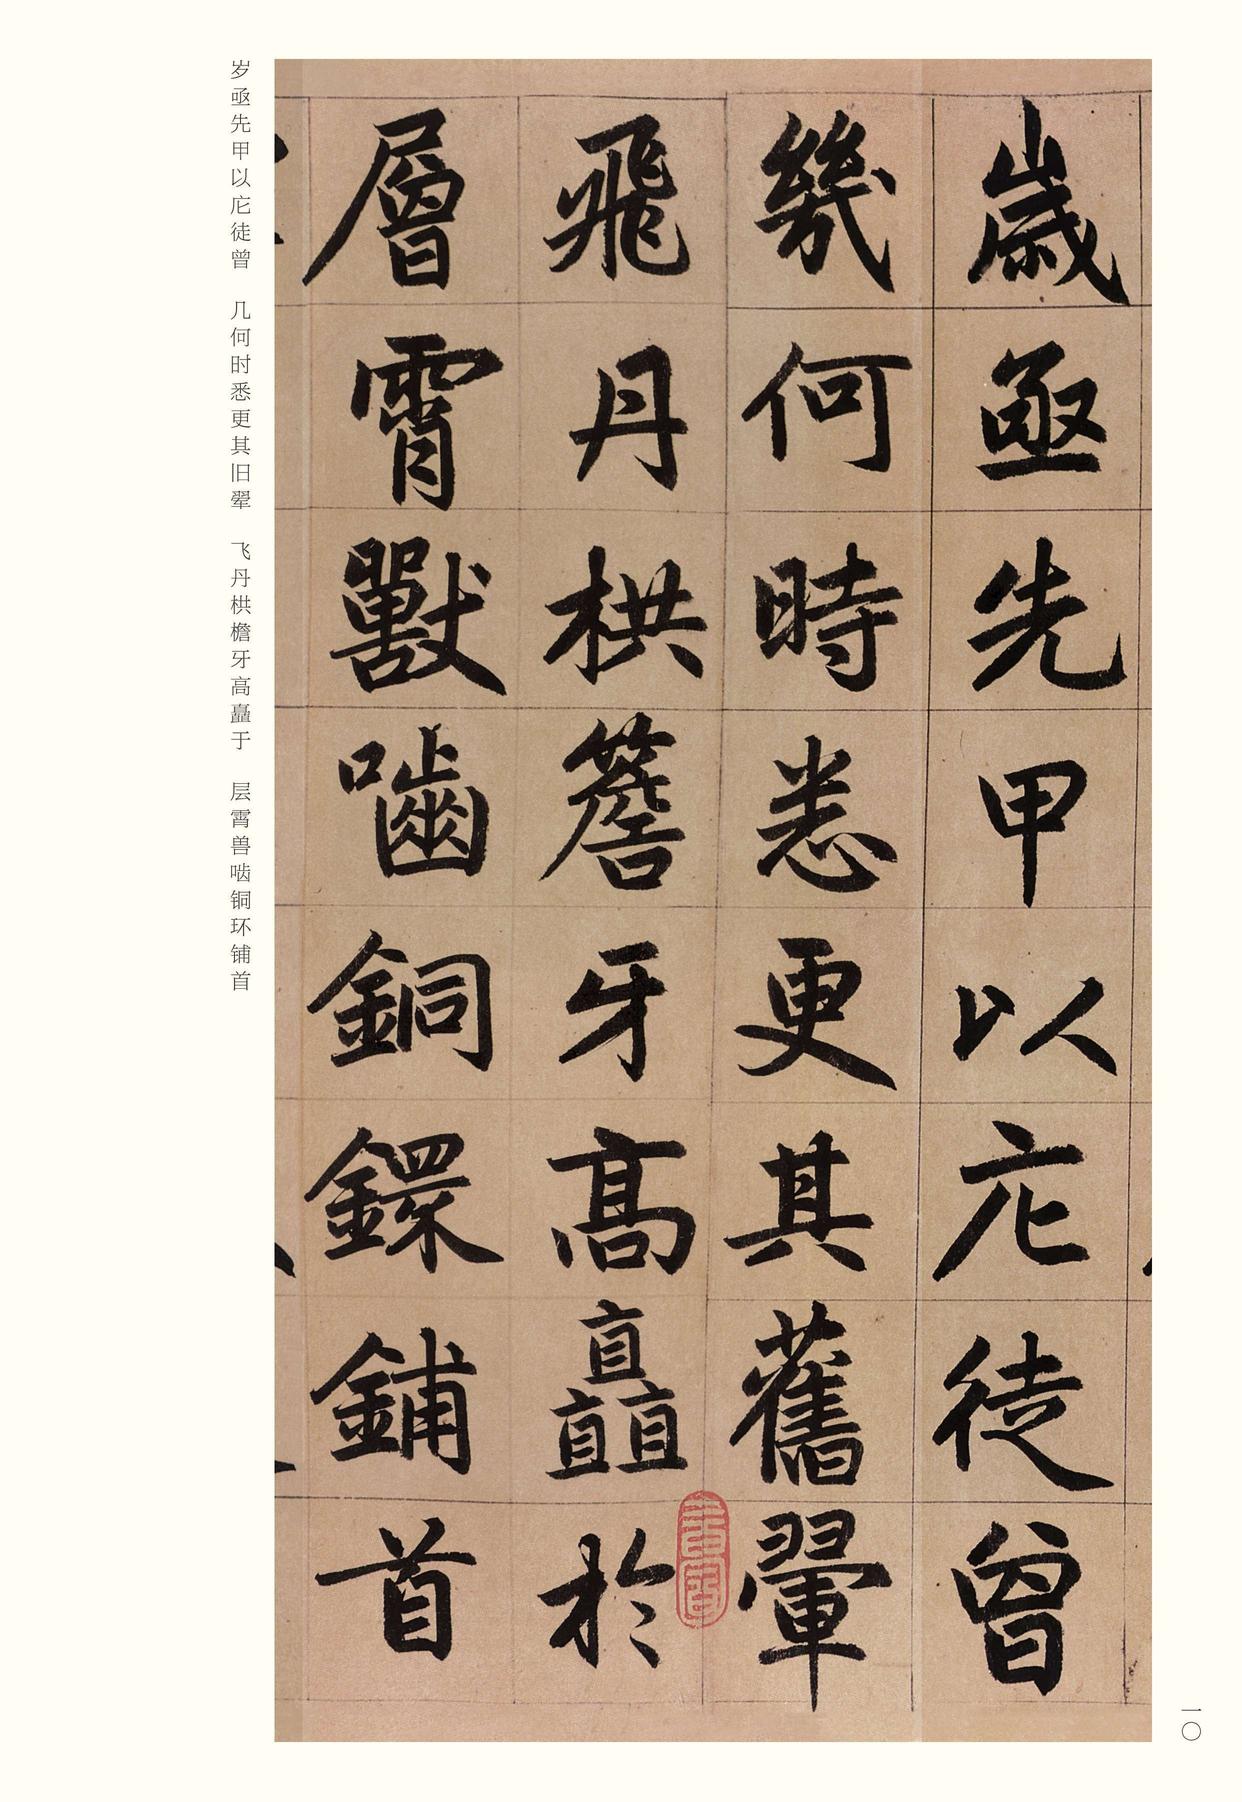 歲亟先甲以庀徒曾
幾何時悉更其舊翬
飛丹栱簷牙高矗於
層霄獸嚙銅鐶鋪首
岁亟先甲以庀徒曾 几何时悉更其旧翚 飞丹栱檐牙高矗于 层霄兽啮铜环铺首
一〇